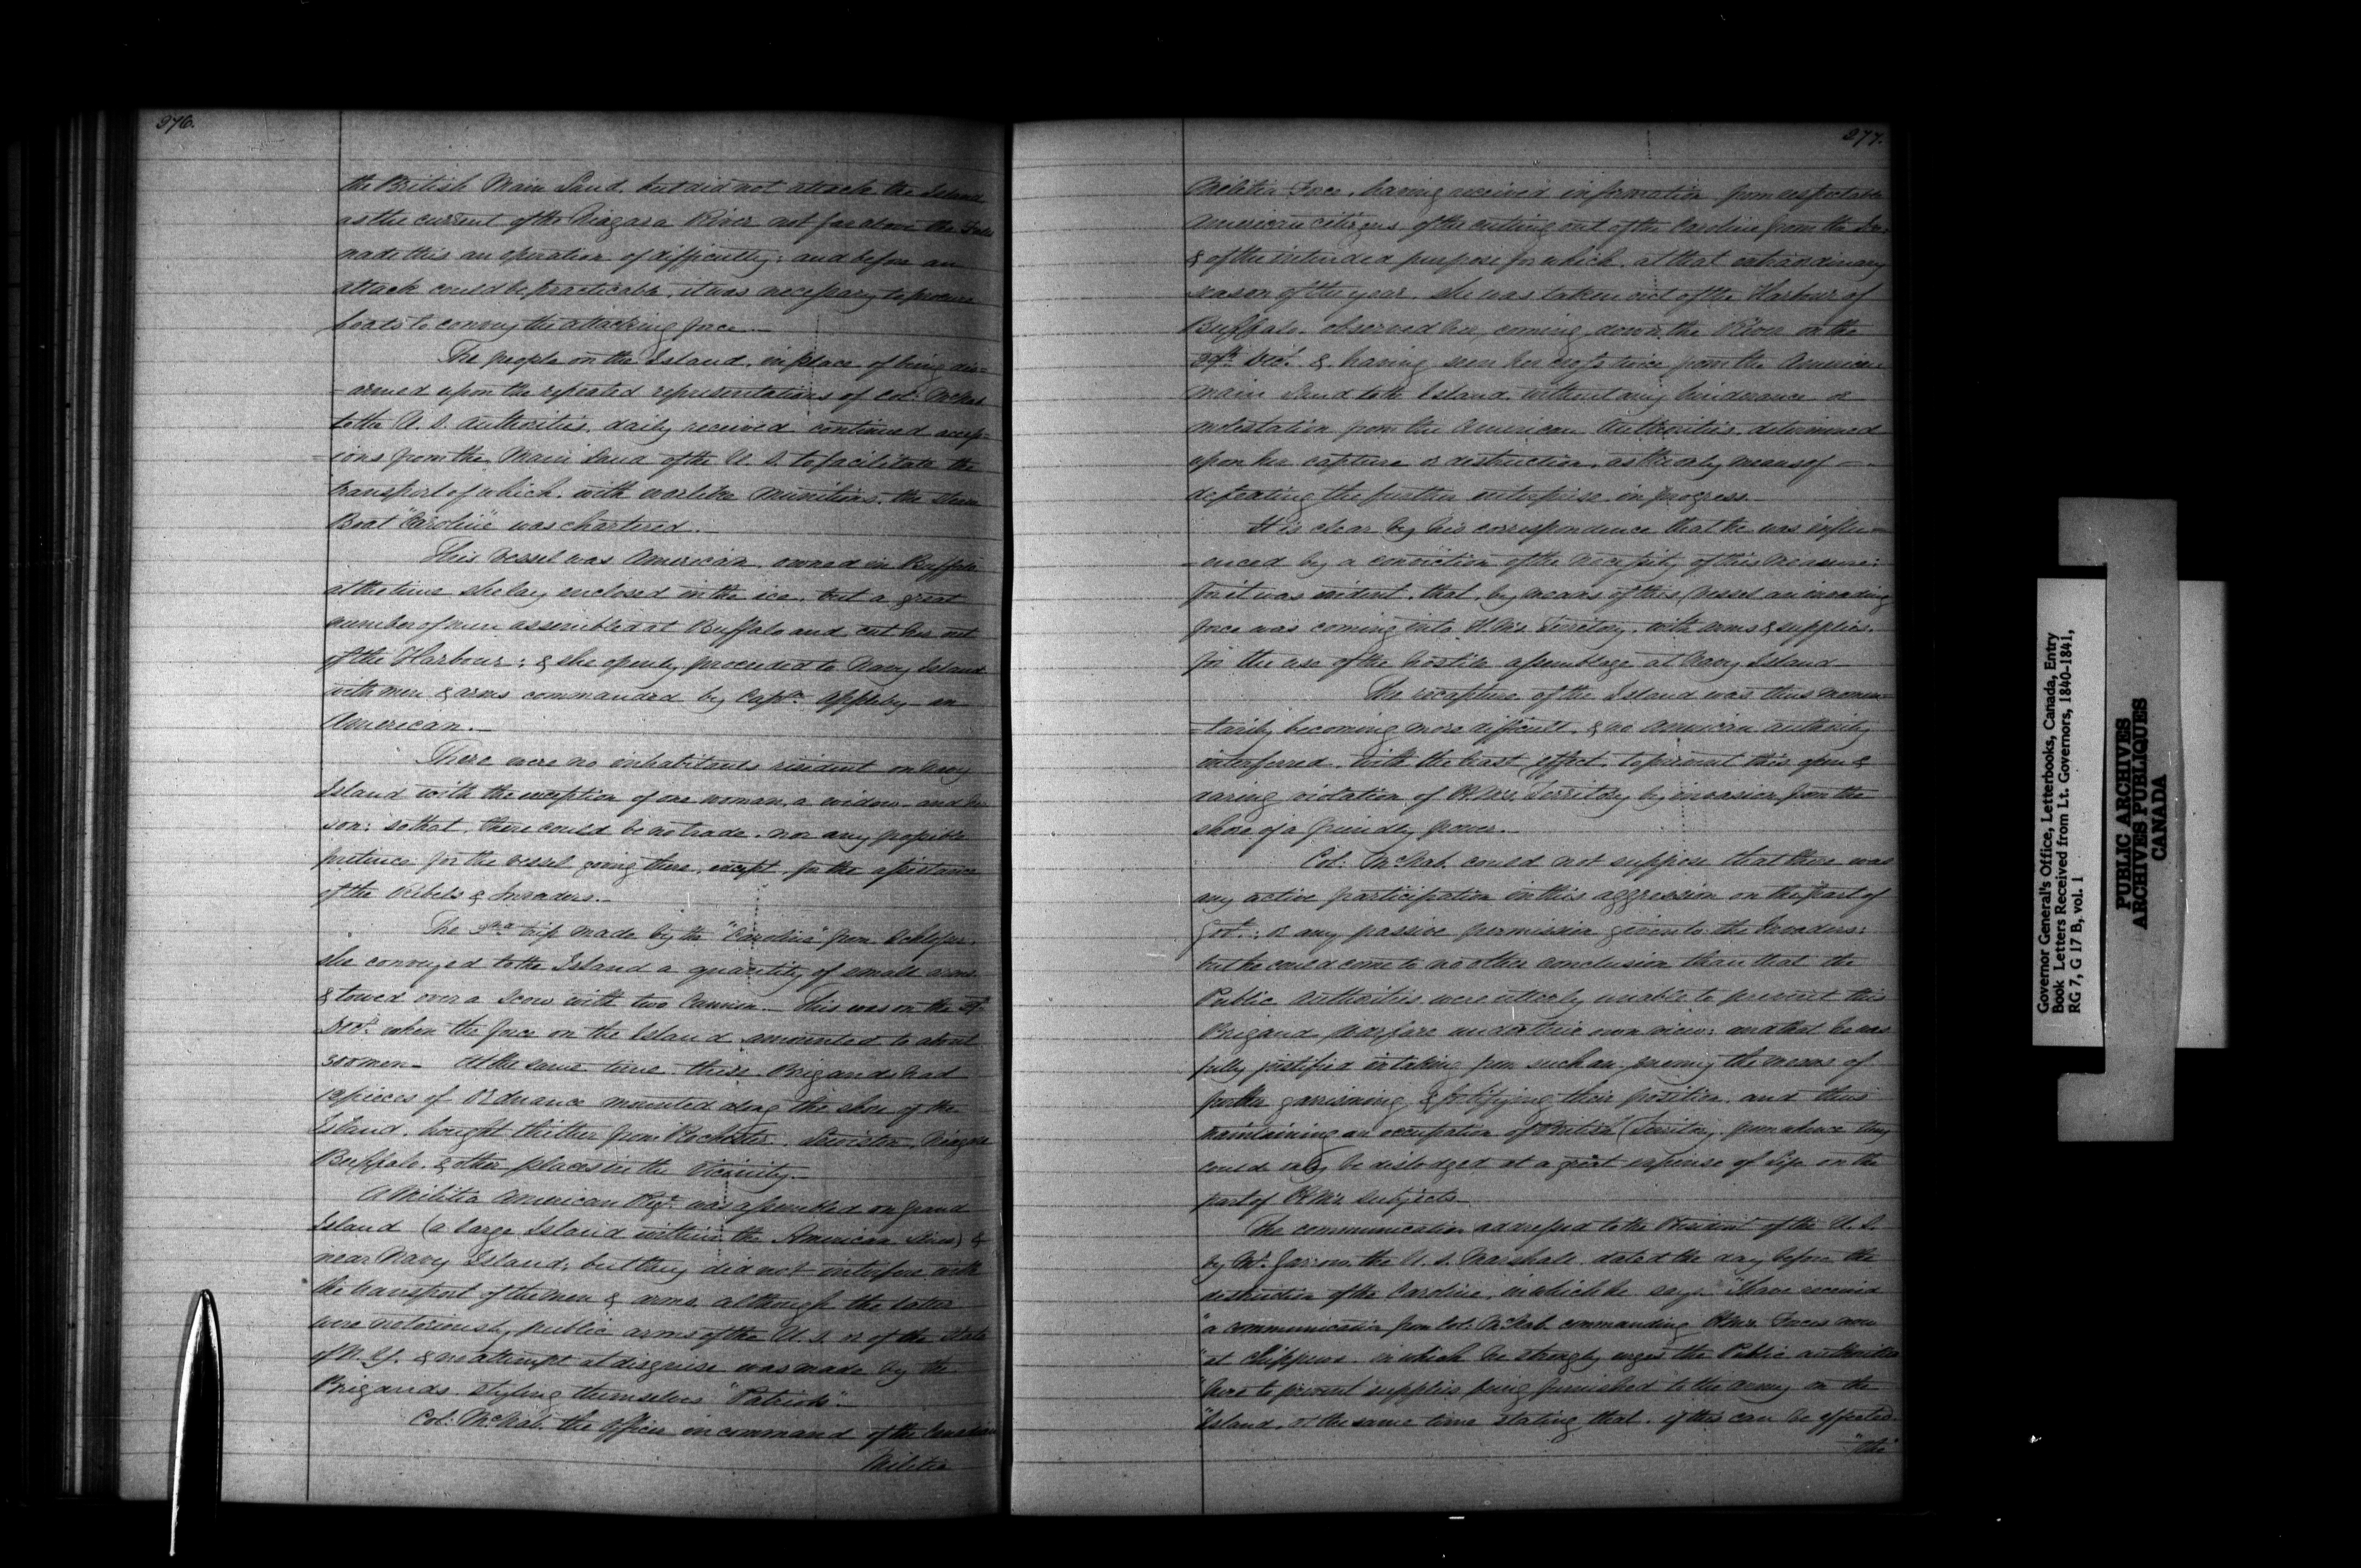 276.
the British Main Land, but did not attack the Island
as the current of the Niagara River not far above the Falls
made this an operation of difficulty; and before an
attack could be practicable, it was necessary to procure
boats to convey the attacking force.—
The people on the Island, in place of being dis=
=armed upon the repeated representations of Col: McNab
to the U. S. Authorities, daily received continued access=
=ions from the Main Land of the U. S. to facilitate the
transport of which, with warlike munitions, the Steam
Boat "Caroline" was chartered.—
This vessel was American, owned in Buffalo
at the time she lay enclosed in the ice, but a great
number of men assembled at Buffalo and cut her out
of the Harbour; & she openly proceeded to Navy Island
with men & arms commanded by Captn. Appleby an
American.—
There were no inhabitants resident on Navy
Island with the exception of one woman, a widow, and her
son; so that, there could be no trade, nor any possible
pretence for the vessel going there, except for the assistance
of the Rebels & Invaders.—
The trip made by the "Caroline" from Schlosser,
she conveyed to the Island a quantity of small arms
& towed over a Scow with two Cannon.— This was on the
Decr. when the force on the Island amounted to about
300 men— At the same time these Brigands had
12 pieces of Ordnance mounted along the shore of the
Island, brought thither from Rochester, Lewiston, Niagara
Buffalo, & other places in the Vicinity.—
A Militia American Regt. was assembled on Grand
Island (a large Island within the American Lines) &
near Navy Island; but they did not interfere with
the transport of the men & arms, although the latter
were notoriously public arms of the U. S. or of the State
of N. Y. & no attempt at disguise was made by the
Brigands styling themselves "Patriots".—
Col: McNab, the Officer in command of the Canadian
Militia
277.
Militia Force, having received information from respectable
American citizens of the cutting out of the Caroline from the Ice
& of the intended purpose for which, at that extraordinary
season of the year, she was taken out of the Harbour of
Buffalo, observed her, coming down the River on the
29th. Decr. & having seen her cross twice from the American
Main Land to the Island, without any hinderance or
molestation from the American Authorities, determined
upon her capture or destruction, as the only means of —
defeating the further enterprise in progress.
It is clear by his correspondence that he was influ=
=enced by a conviction of the necessity of this measure:
for it was evident, that, by means of this Vessel an invading
force was coming into H. M's. Territory, with arms & supplies,
for the use of the hostile assemblage at Navy Island—
The recapture of the Island was thus momen=
=tarily becoming more difficult, & no American authority
interferred, with the least effect, to prevent this open &
daring violation of H. M's. Territory by invasion from the
shore of a friendly power.—
Col: McNab, could not suppose that there was
any active participation in this aggression on the part of
Govt.: or any passive permission given to the Invaders:
but he could come to no other conclusion than that the
Public Authorities were utterly unable to prevent this
Brigand Warfare under their own view: and that he was
fully justified in taking from such an enemy the means of
further garrisoning & fortifying their position, and thus
maintaining an occupation of British Territory, from whence they
could only be dislodged at a great expense of life on the
part of H. M's. Subjects—
The communication addressed to the President of the U. S.
by Mr. Garrow, the U. S. Marshall, dated the day before the
destruction of the Caroline, in which he says, "I have received
"a communication from Col: McNab commanding H. M's. Forces now
"at Chippewa, in which he strongly urges the Public Authorities
"here to prevent supplies being furnished to the army on the
"Island, at the same time stating that, if this can be effected
"the"
Governor General's Office, Letterbooks, Canada, Entry
Book Letters Received from Lt. Governors, 1840-1841,
RG 7, G 17 B, vol. 1
PUBLIC ARCHIVES
ARCHIVES PUBLIQUES
CANADA